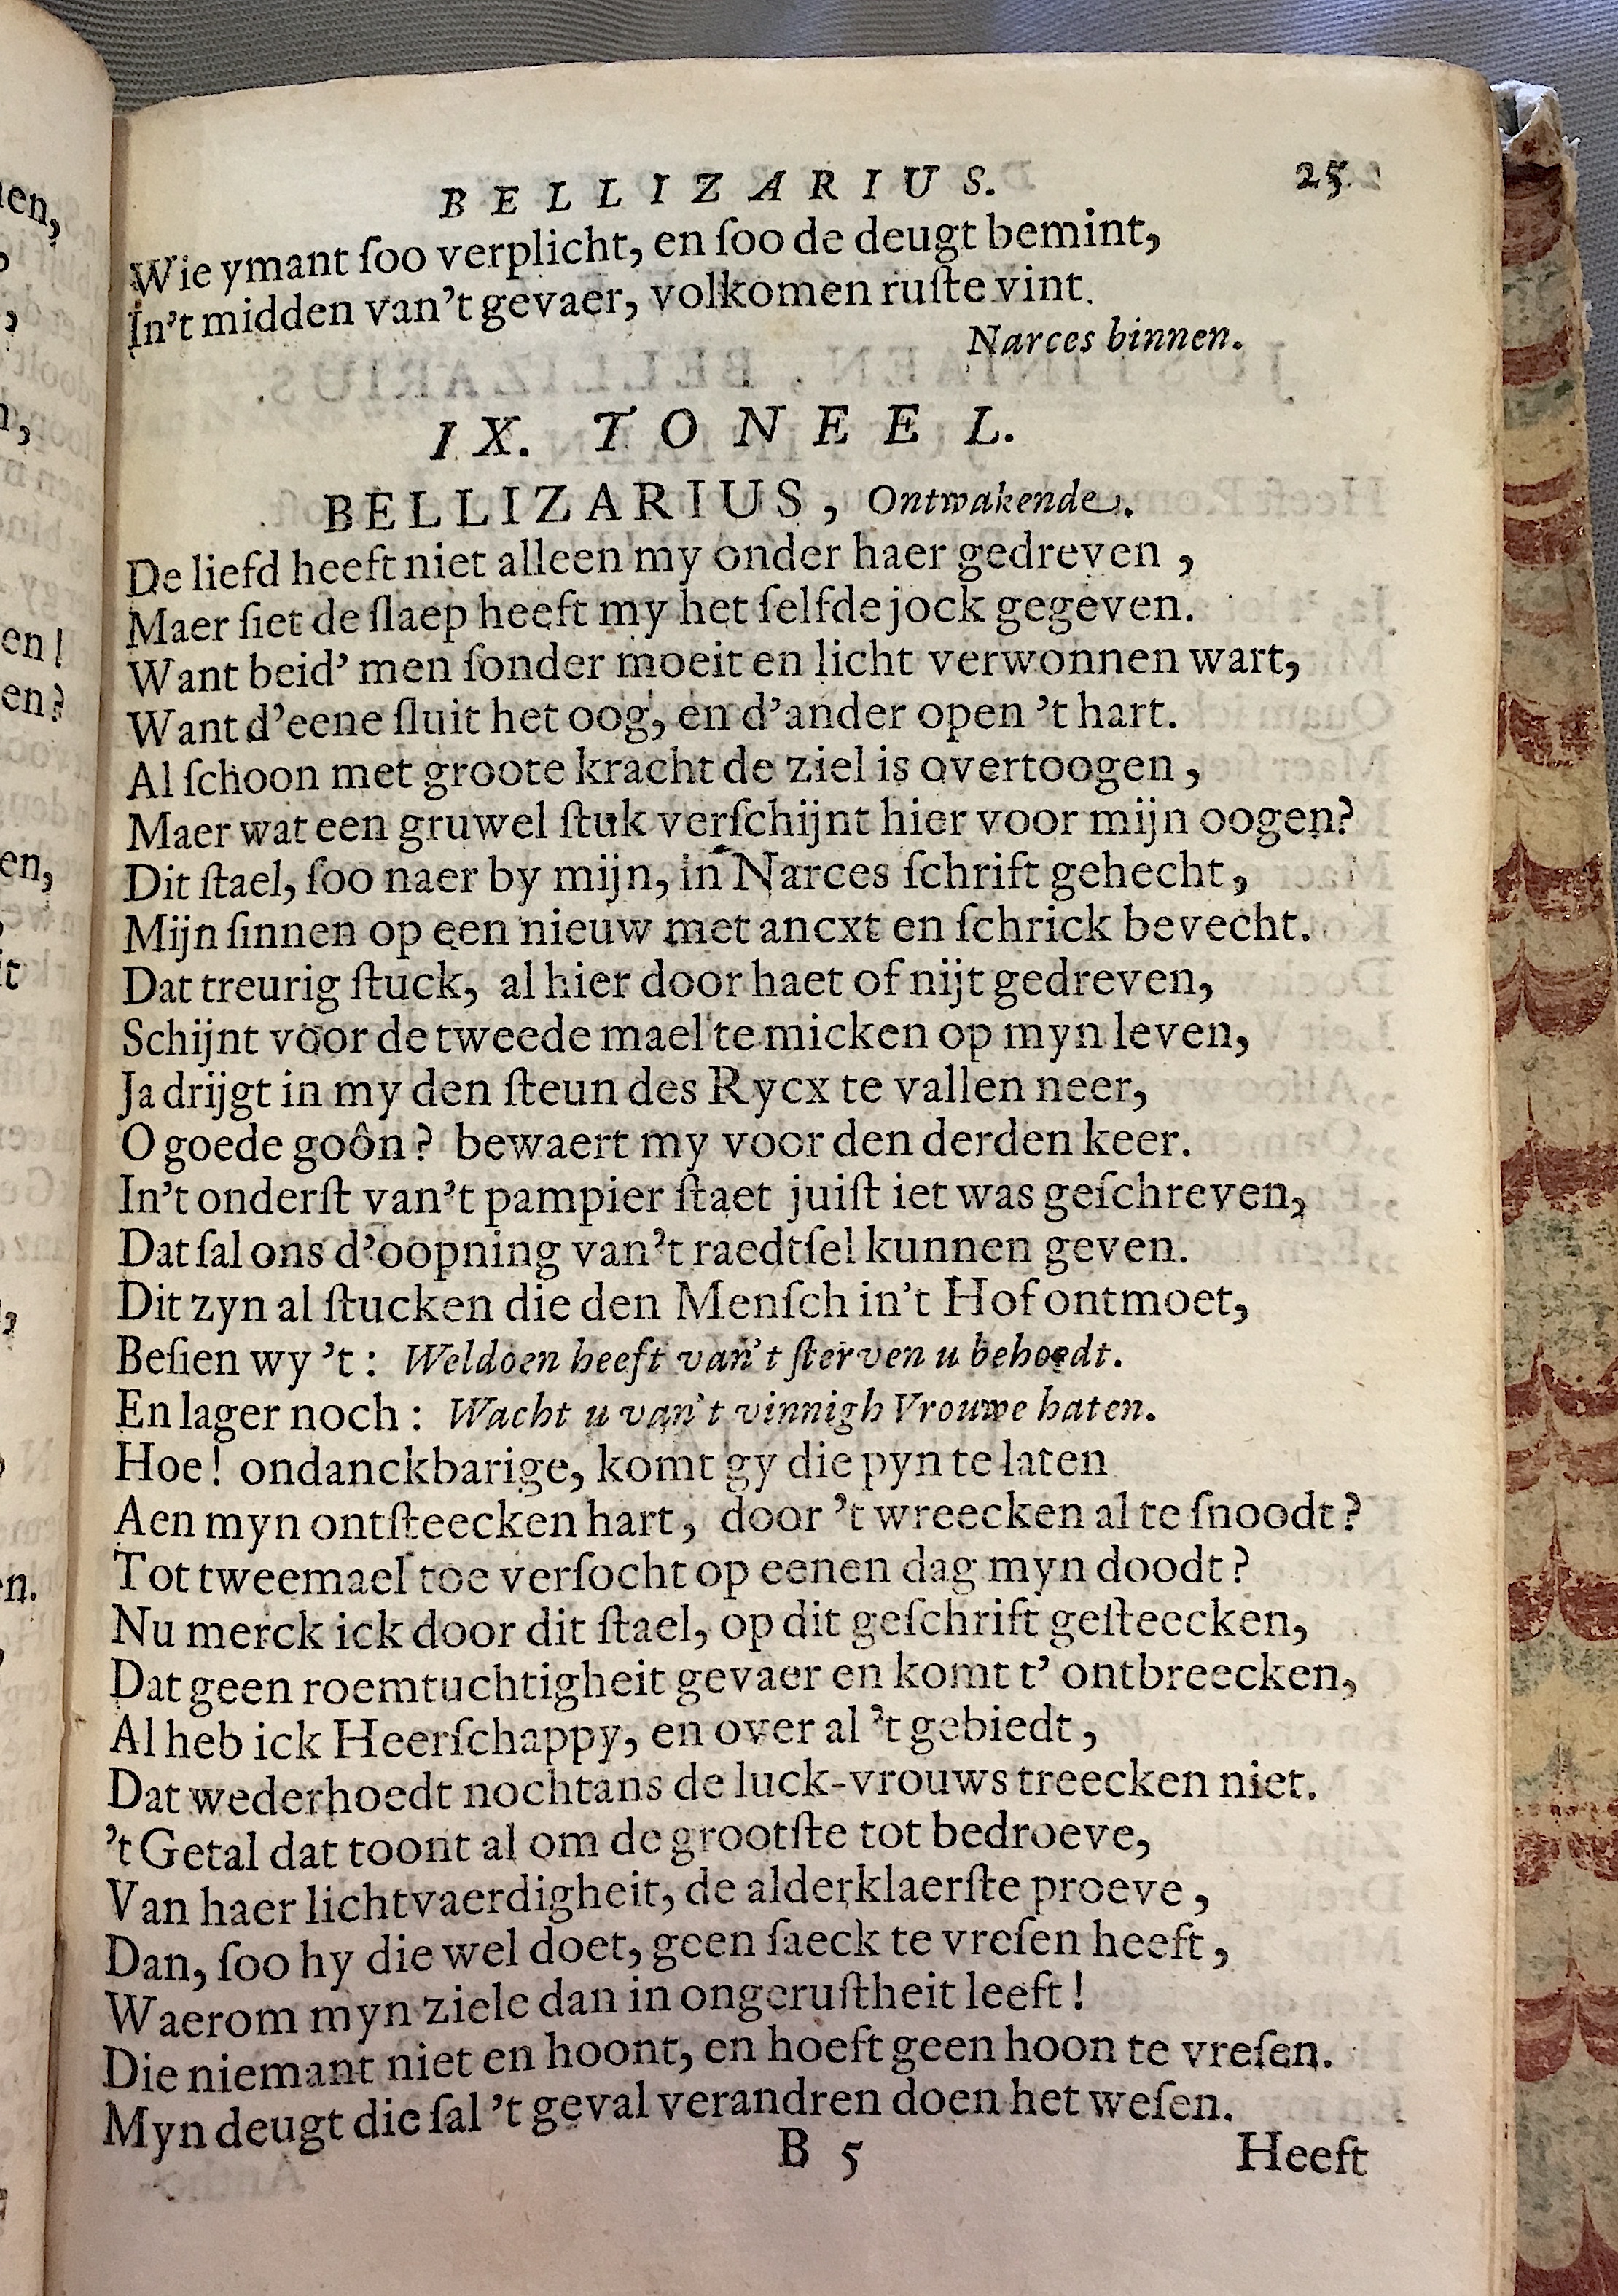 BELLIZARIUS. 25
Wie ymant ſoo verplicht, en ſoo de deugt bemint,
In't midden van't gevaer, volkomen ruſte vint.
Narces binnen.
IX. TONEEL.
BELLIZARIUS, Ontwakende.
De liefd heeft niet alleen my onder haer gedreven,
Maer ſiet de ſlaep heeft my het ſelfde jock gegeven.
Want beid' men ſonder moeit en licht verwonnen wart,
Want d'eene ſluit het oog, en d'ander open 't hart.
Al ſchoon met groote kracht de ziel is overtoogen,
Maer wat een gruwel ſtuk verſchijnt hier voor mijn oogen?
Dit ſtael, ſoo naer by mijn, in Narces ſchrift gehecht,
Mijn ſinnen op een nieuw met ancxt en ſchrick bevecht.
Dat treurig ſtuck, al hier door haet of nijt gedreven,
Schijnt voor de tweede mael te micken op myn leven,
Ja drijgt in my den ſteun des Rycx te vallen neer,
O goede goôn? bewaert my voor den derden keer.
In't onderſt van't pampier ſtaet juiſt iet was geſchreven,
Dat ſal ons d'oopning van't raedtſel kunnen geven.
Dit zyn al ſtucken die den Menſch in't Hof ontmoet,
Beſien wy 't: Weldoen heeft van't ſterven u behoedt.
En lager noch: Wacht u van't vinnigh Vrouwe haten.
Hoe! ondanckbarige, komt gy die pyn te laten
Aen myn ontſteecken hart, door 't wreecken al te ſnoodt?
Tot tweemael toe verſocht op eenen dag myn doodt?
Nu merck ick door dit ſtael, op dit geſchrift geſteecken,
Dat geen roemtuchtigheit gevaer en komt t' ontbreecken,
Al heb ick Heerſchappy, en over al 't gebiedt,
Dat wederhoedt nochtans de luck-vrouws treecken niet.
't Getal dat toont al om de grootſte tot bedroeve,
Van haer lichtvaerdigheit, de alderklaerſte proeve,
Dan, ſoo hy die wel doet, geen ſaeck te vreſen heeft,
Waerom myn ziele dan in ongeruſtheit leeft!
Die niemant niet en hoont, en hoeft geen hoon te vreſen.
Myn deugt die ſal 't geval verandren doen het weſen.
B 5 Heeft